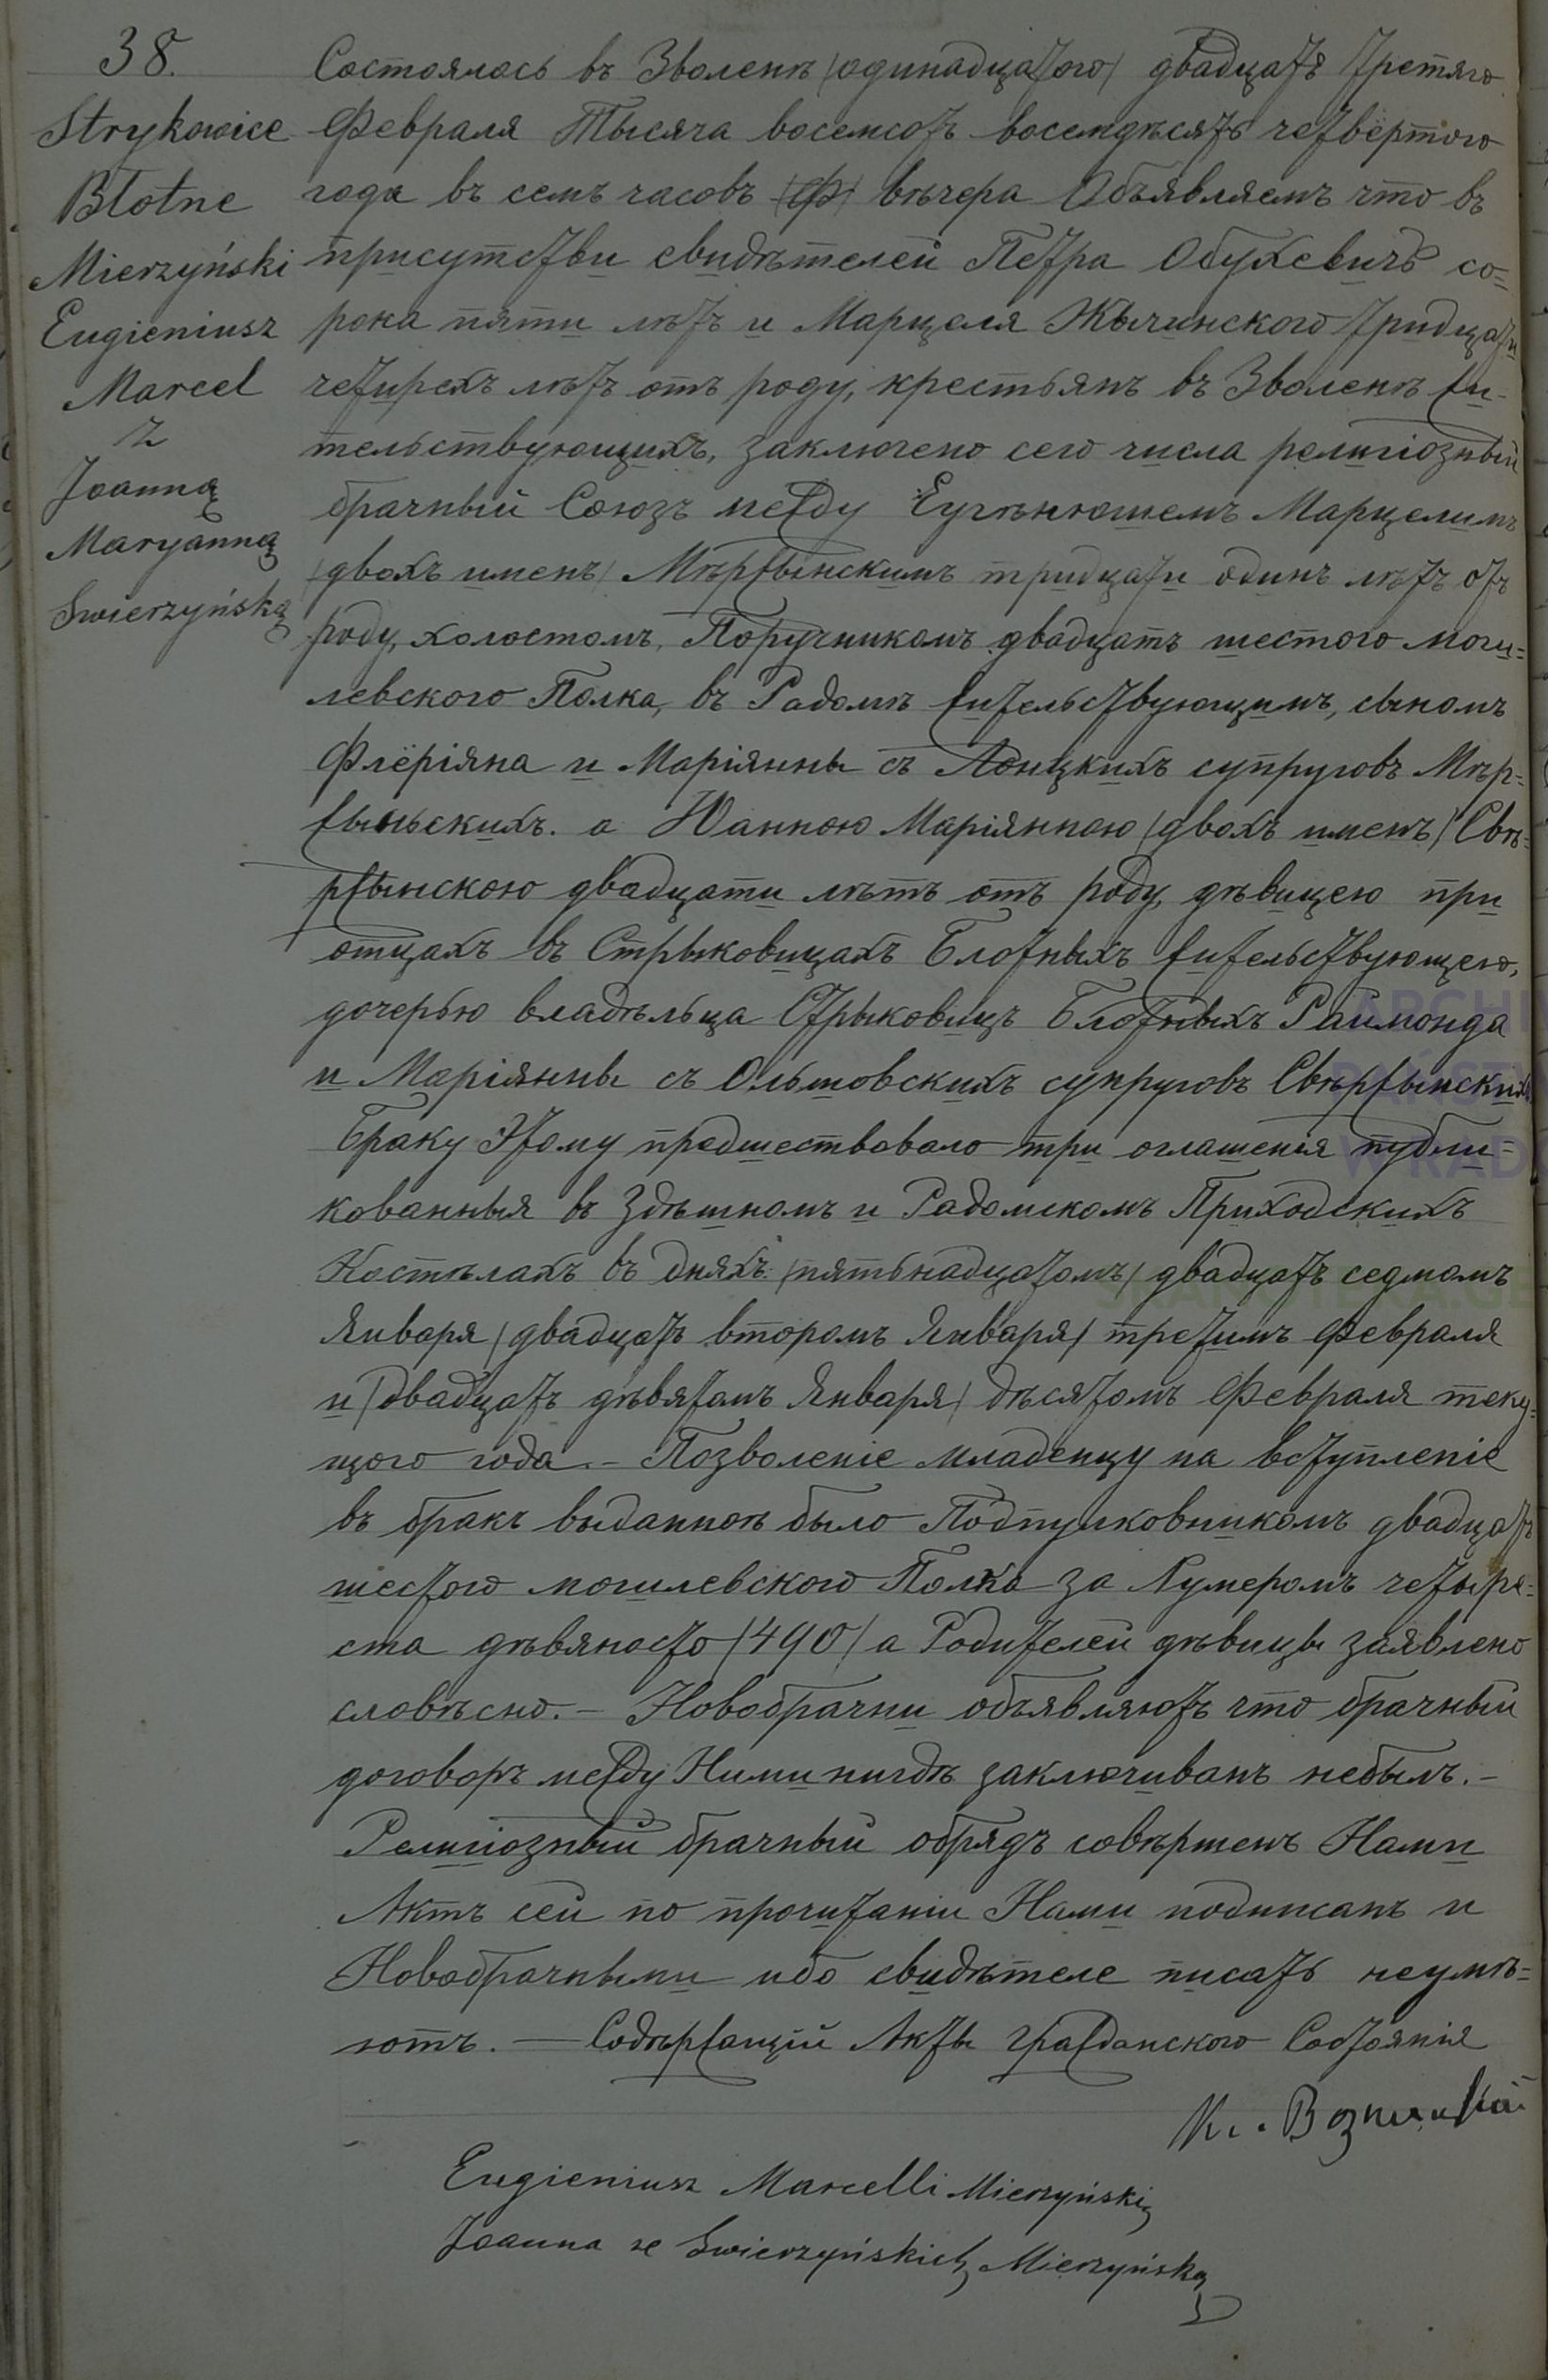 38.
Strykowice
Błotne
Mierzyński
Eugieniusz
Marcel
z
Joanną
Maryanną
Swierzyńską
Состоялось въ Зволенѣ (одинадцатого) двадцать третяго
Февраля Тысяча восемсотъ восемдѣсятъ четвёртого
года въ семъ часовъ (Ф) вѣчера Объявляемъ что въ
присутстви свидѣтелей Петра Обухевичъ со=
рока пяти лѣтъ и Марцеля Жычинского тридцати
четирехъ лѣтъ отъ роду, крестьянъ въ Зволенѣ жи-
тельствующихъ, заключено сего числа религіозный
брачный Союзъ между Еугѣнюшемъ Марцелимъ
(двохъ именъ) Мѣржынскимъ тридцати одинъ лѣтъ отъ
роду, холостомъ, Поручникомъ двадцатъ шестого моги=
левского Полка, въ Радомѣ жительствующимъ, сыномъ
Флёріяна и Маріянны съ Лонцкихъ супруговъ Мѣр=
жыньскихъ. а Юанною Маріянною (двохъ именъ) Свѣ=
ржынскою двадцати лѣтъ отъ роду, дѣвицею при
отцахъ въ Стрыковицахъ Блотныхъ жительствующею,
дочерью владѣльца Стрыковицъ Блотныхъ Раимонда
и Маріянны съ Ольшовскихъ супруговъ Свѣржынскихъ
Браку Этому предшествовало три оглашенія публи=
кованныя въ Здѣшномъ и Радомскомъ Приходскихъ
Костѣлахъ въ дняхъ: (пятьнадцатомъ) двадцатъ седмомъ
Января (двадцатъ второмъ Января) третимъ Февраля
и (двадцатъ дѣвятомъ Января) дѣсятомъ Февраля теку=
щого года.- Позволеніе младенцу на вступленіе
въ бракъ выданноѣ было Подпулковникомъ двадцатъ
шестого могилевского Полка за Нумеромъ четыре=
ста дѣвяносто (490) а Родителей дѣвицы заявлено
словѣсно.- Новобрачни объявляютъ что брачный
договоръ между Ними нигдѣ заключиванъ небылъ.-
Религіозный брачный обрядъ совѣршенъ Нами
Актъ сей по прочитаніи Нами подписанъ и
Новобрачными ибо свидѣтеле писать неумѣ=
ютъ. — Содѣржащій Акты Гражданского Состоянія
Eugieniusz Marcelli Mierzyński
Joanna ze Swierzyńskich Mierzyńska